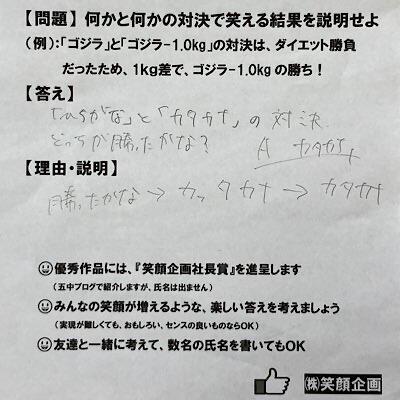 【問題】何かと何かの対決で笑える結果を説明せよ
(例):「ゴジラ」と「ゴジラ-1.0kg」の対決は、ダイエット勝負
だったため、1kg差で、ゴジラ-1.0kgの勝ち!
【答え】
「ひらがな」と「カタカナ」の対決
どっちが勝ったかな? A カタカナ
【理由・説明】
勝ったかな → カッタカナ → カタカナ
優秀作品には、『笑顔企画社長賞』を進呈します
(五中ブログで紹介しますが、氏名は出ません)
みんなの笑顔が増えるような、楽しい答えを考えましょう
(実現が難しくても、おもしろい、センスの良いものならOK)
友達と一緒に考えて、数名の氏名を書いてもOK
(株)笑顔企画